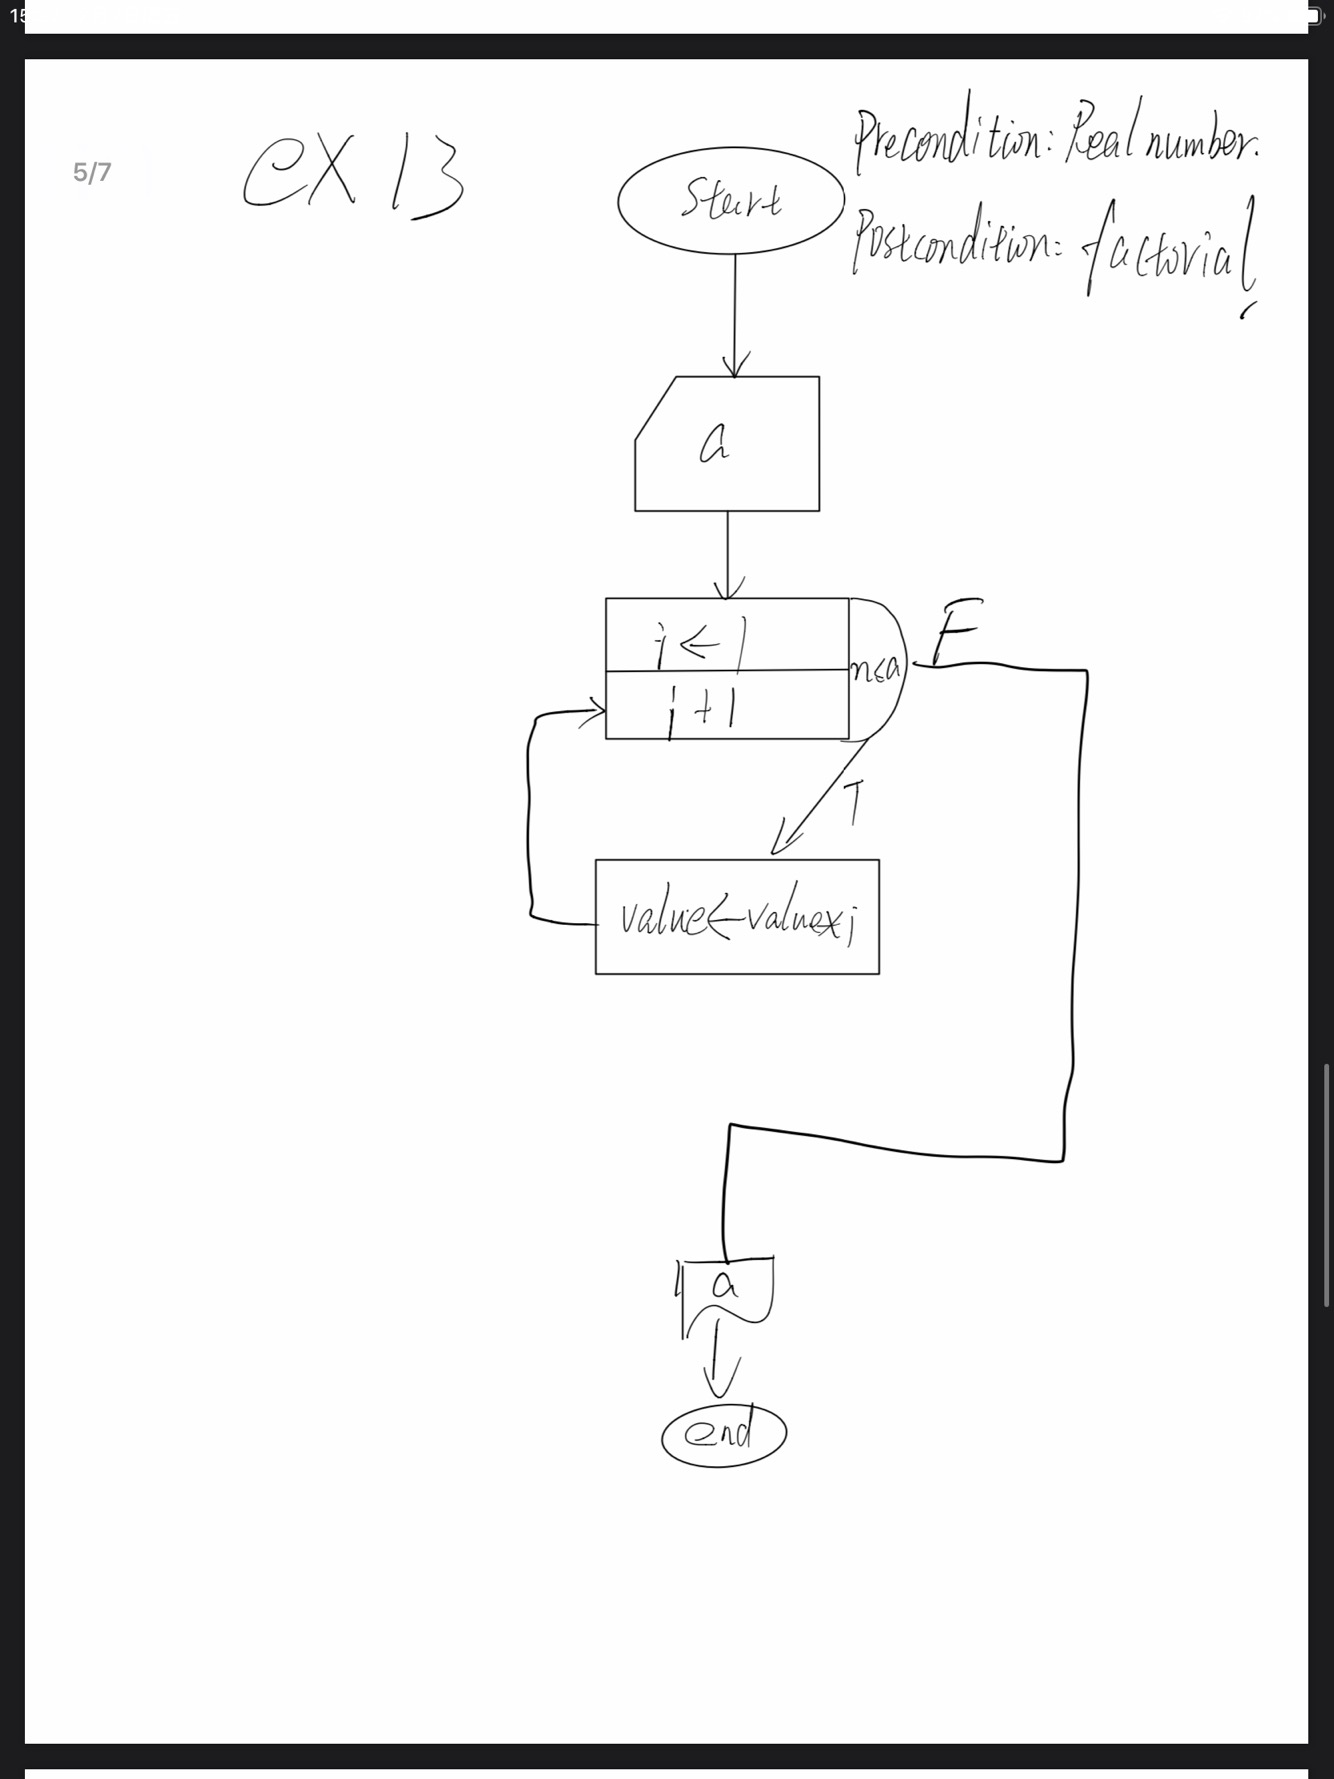 15
5/7
ex 13
Precondition: Real number.
Postcondition: factorial
Start
a
j ← 1
j + 1
n≤a
F
T
value←value×j
a
end